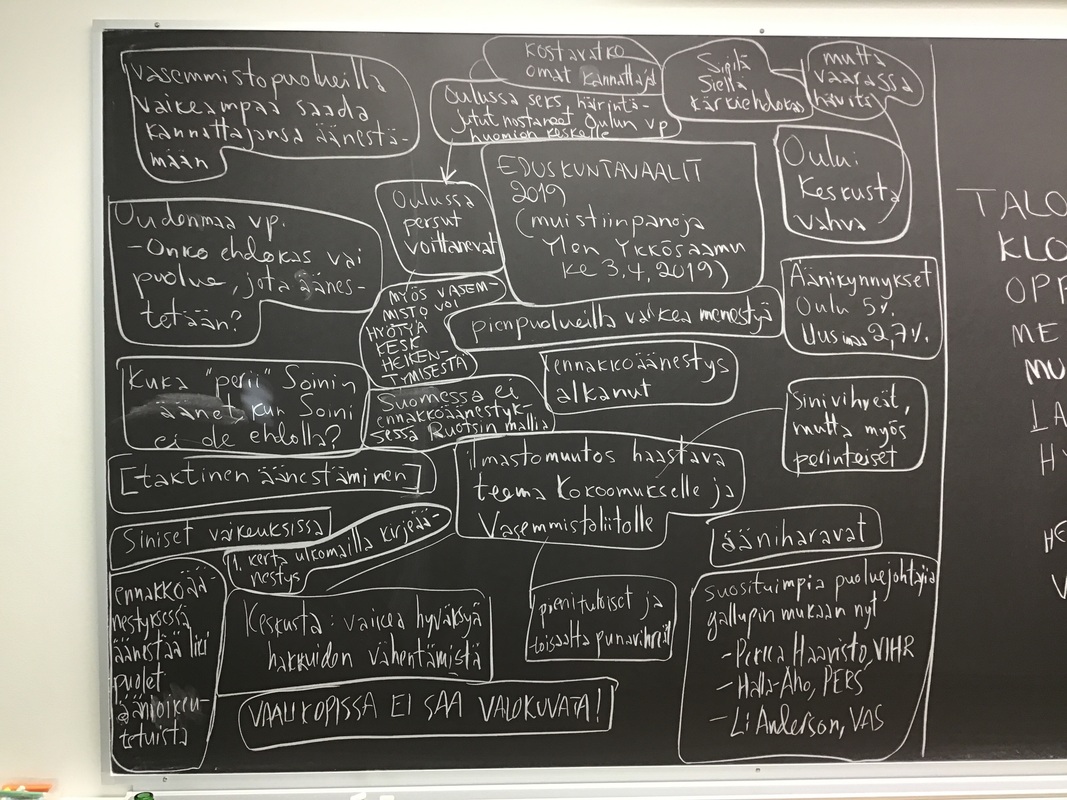 vasemmistopuolueilla
vaikeampaa saada
kannattajansa äänestä-
mään
kostavatko
omat kannattajat
Oulussa seks. häirintä-
jutut nostaneet Oulun vp
huomion keskelle
Sipilä
siellä
kärkiehdokas
mutta
vaarassa
hävitä
EDUSKUNTAVAALIT
2019
(muistiinpanoja
Ylen Ykkösaamu
ke 3.4.2019)
Oulu:
Keskusta
vahva
Oulussa
persut
voittanevat
Uudenmaa vp.
-Onko ehdokas vai
puolue, jota äänes-
tetään?
Äänikynnykset
Oulu 5%
Uusimaa 2,7%
MYÖS VASEM-
MISTO VOI
HYÖTYÄ
KESK
HEIKEN-
TYMISESTÄ
pienpuolueilla vaikea menestyä
ennakkoäänestys
alkanut
Kuka "perii" Soinin
äänet, kun Soini
ei ole ehdolla?
Suomessa ei
ennakkoäänestyk-
sessä Ruotsin mallia
Sinivihreät,
mutta myös
perinteiset
[taktinen äänestäminen]
ilmastomuutos haastava
teema Kokoomukselle ja
Vasemmistoliitolle
Siniset vaikeuksissa
1. kerta ulkomailla kirjeää-
nestys
ääniharavat
ennakkoää-
nestyksessä
äänestää liki
puolet
äänioikeu-
tetuista
Keskusta: vaikea hyväksyä
hakkuiden vähentämistä
pienituloiset ja
toisaalta punavihreät
suosituimpia puoluejohtajia
gallupin mukaan nyt
-Pekka Haavisto, VIHR
-Halla-Aho, PERS
-Li Anderson, VAS
VAALIKOPISSA EI SAA VALOKUVATA!
TALO
KLO
OPP
ME
MU
LA
HY
HE
V